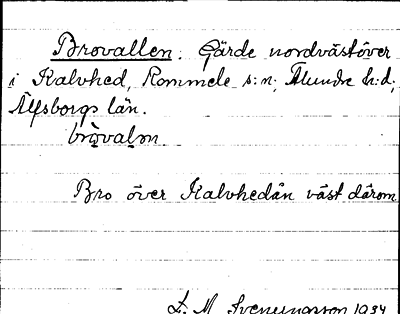 Brovallen. Gärde nordvästöver
i Kalvhed, Rommele s:n, Flundre h:d,
Älfsborgs län.
bròvalǝn.
Bro över Kalvhedån väst därom
L. M. Svenungsson 1934